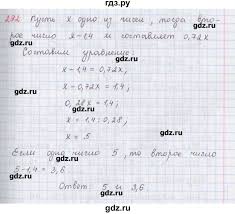 гдз.ру
272 Пусть x одно из чисел, тогда вто-
рое число x-1,4 и составляет 0,72x
Составим уравнение:
x-1,4=0,72x
x-0,72x=1,4
0,28x=1,4
x=1,4:0,28
x=5
Если одно число 5, то второе число
5-1,4=3,6
Ответ 5 и 3,6